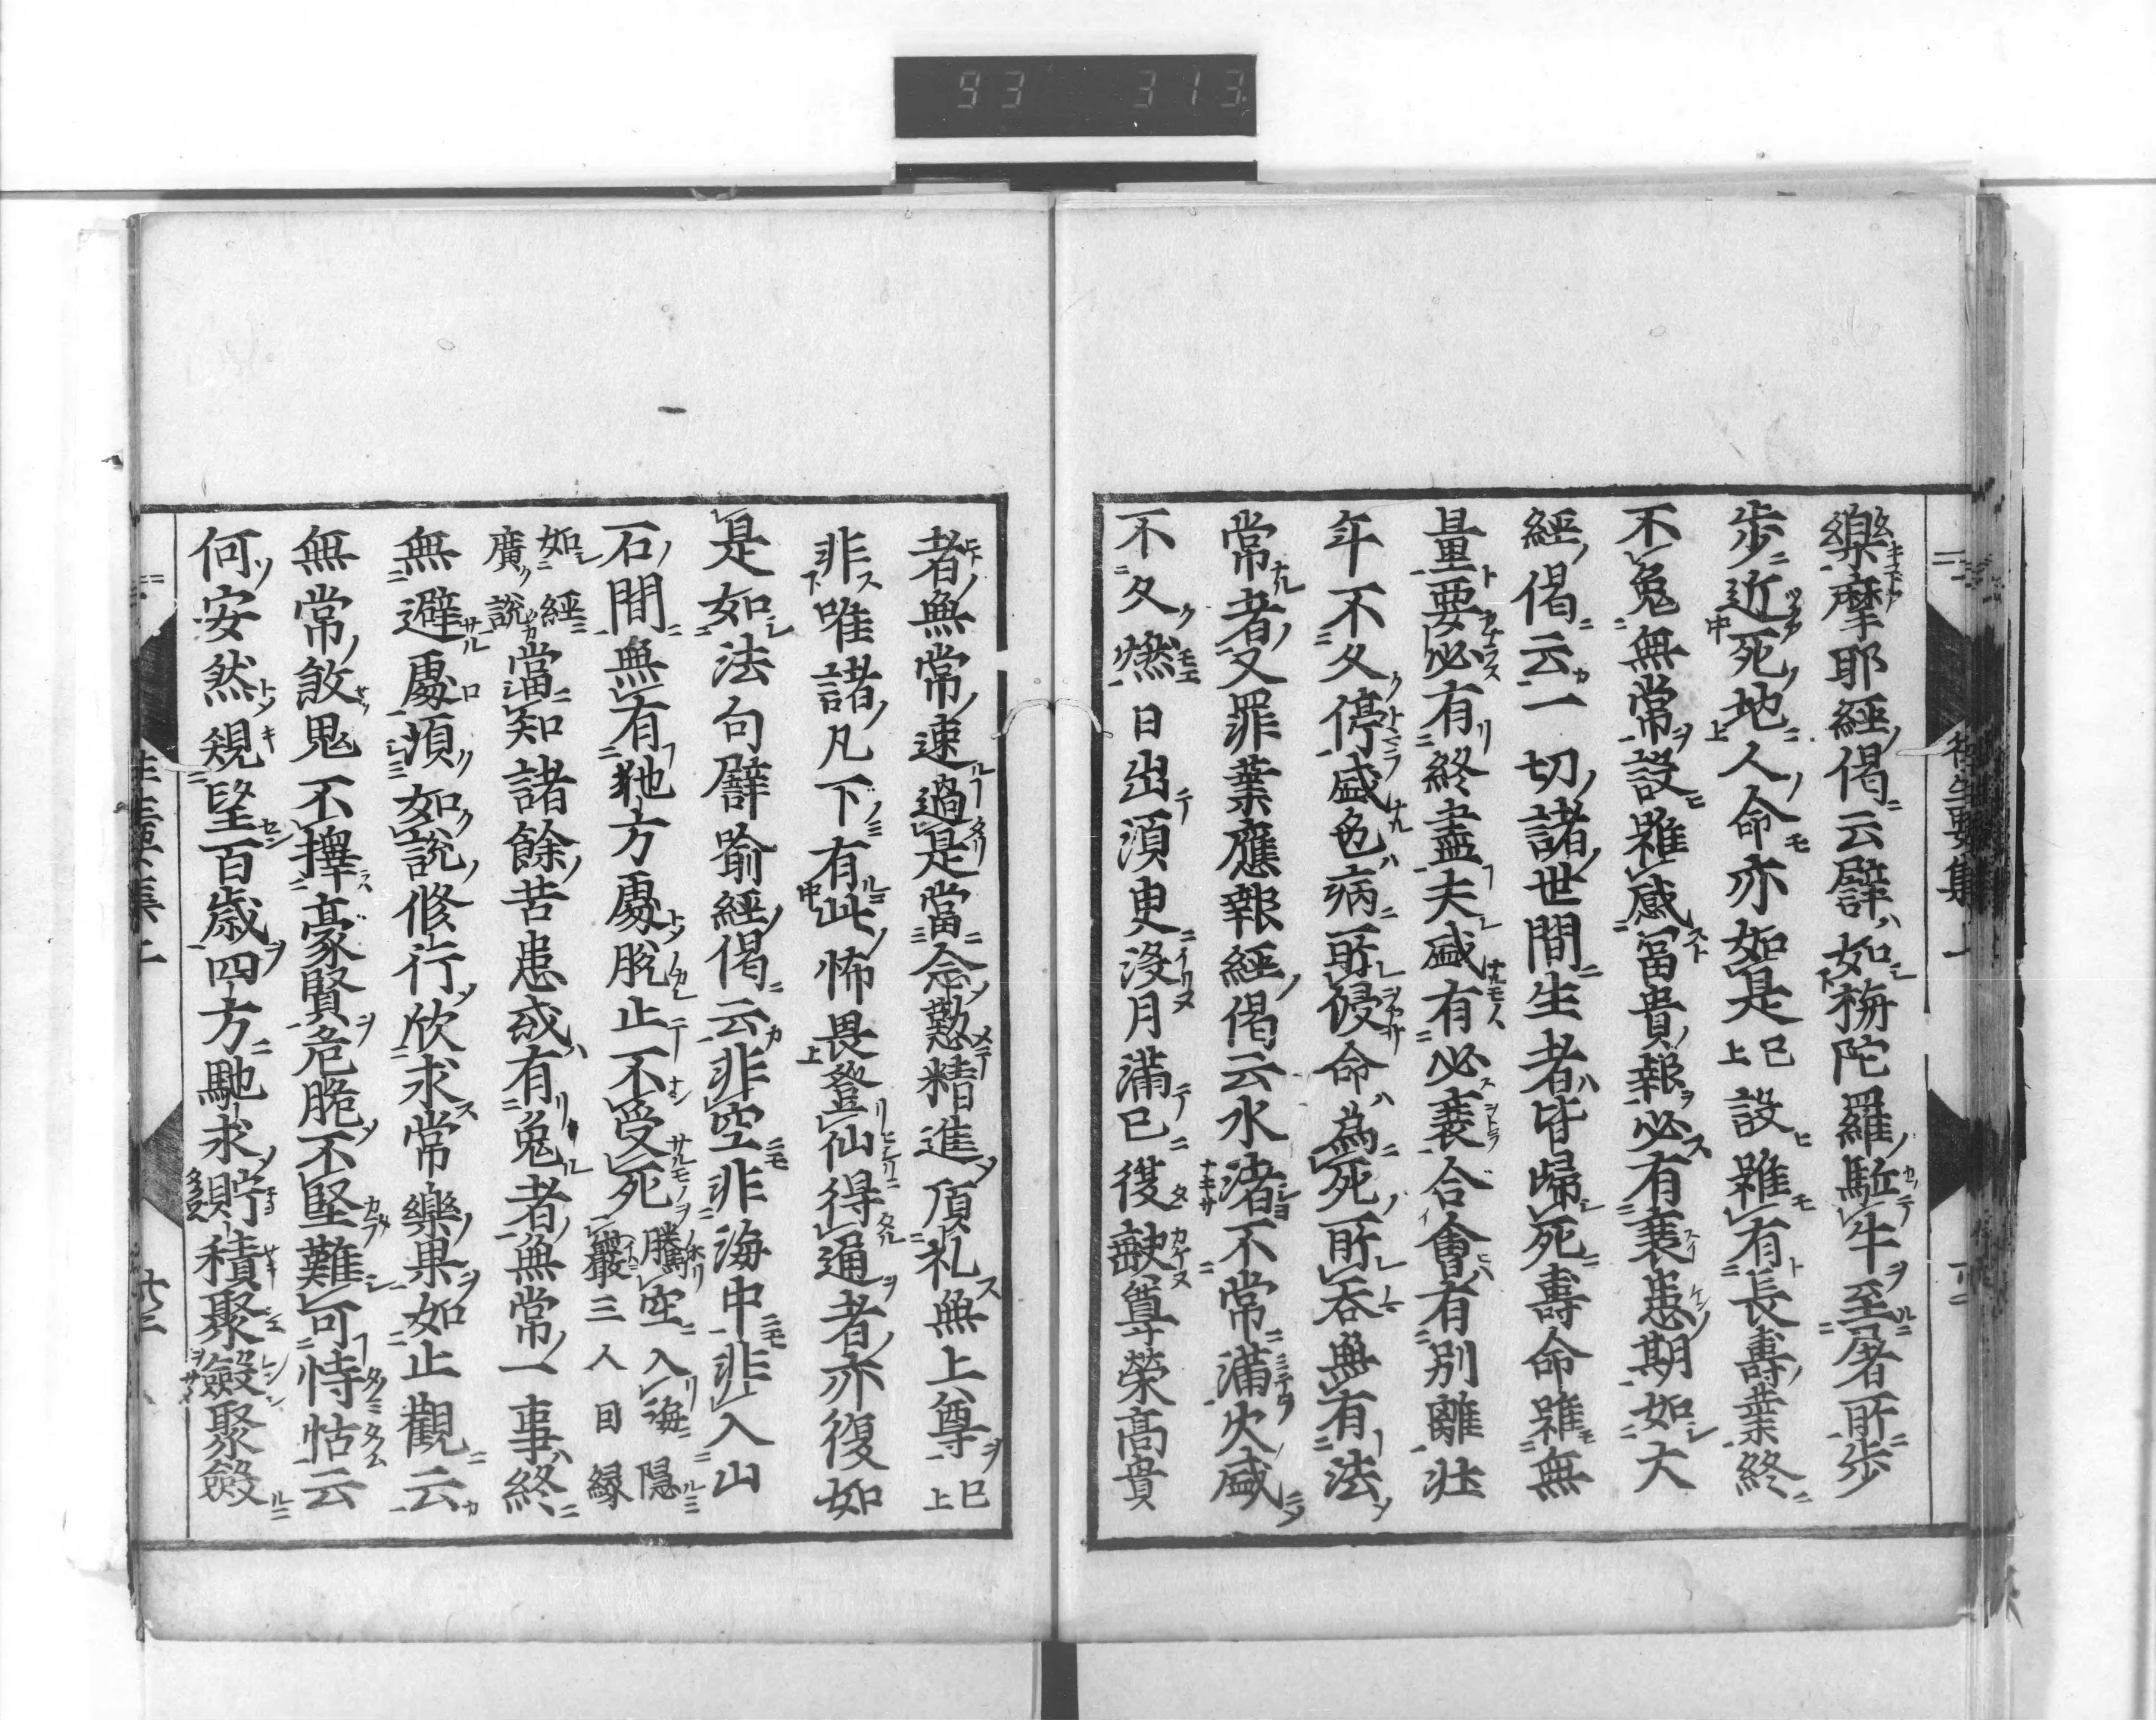 93 313
樂摩耶經偈云譬如栴陀羅駈牛至屠所歩
歩近死地人命亦如是已上設雖有長壽業終
不免無常設雖感富貴報必有衰患期如大
經偈云一切諸世間生者皆歸死壽命雖無
量要必有終盡夫盛有必衰合會有別離壯
年不久停盛色病所侵命為死所呑無有法
常者又罪業應報經偈云水渚不常滿火盛
不久燃日出須臾沒月滿已復缺尊榮高貴
者無常速過是當念懃精進頂礼無上尊已上
非唯諸凡下有此怖畏登仙得通者亦復如
是如法句譬喻經偈云非空非海中非入山
石間無有地方處脱止不受死騰空入海隠巖三人因縁
如經廣說當知諸餘苦患或有免者無常一事終
無避處須如說修行欣求常樂果如止觀云
無常殺鬼不擇豪賢危脆不堅難可恃怙云
何安然規望百歳四方馳求貯積聚斂聚斂